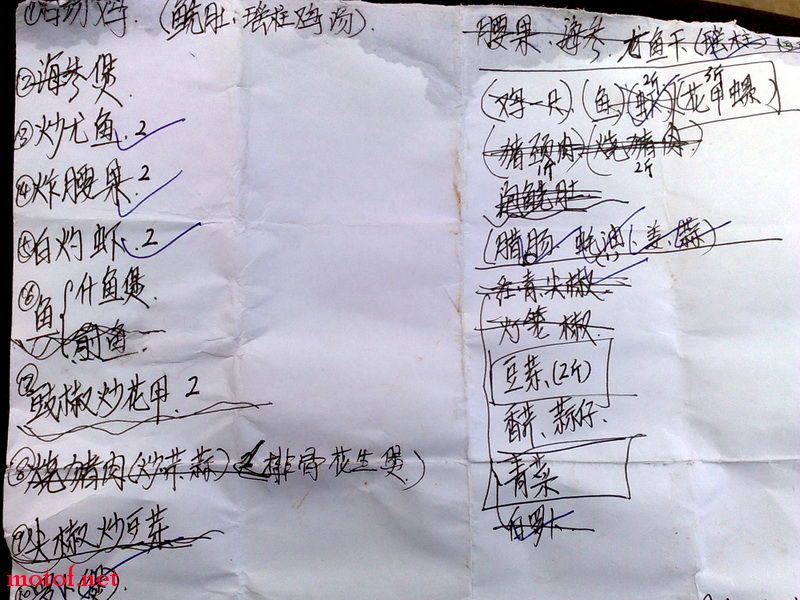 ①白切鸡.(鲍肚:瑶柱鸡汤).
②海参煲
③炒尤鱼.2
④炸腰果2
⑤白灼虾.2
⑥鱼{什鱼煲.
⑦豉椒炒花甲.2
⑧烧猪肉(炒芹蒜)排骨花生煲)
⑨尖椒炒豆芽
motof.net
腰果、海参、尤鱼干(瑶柱)
(鸡一只)(鱼)(虾2斤)(花甲螺3斤)
(猪颈肉1斤)(烧猪肉2斤)
(腊肠、蚝油、姜、蒜)
红青尖椒
灯笼椒
豆芽、(2斤)
香芹、蒜仔.
青菜
白萝卜